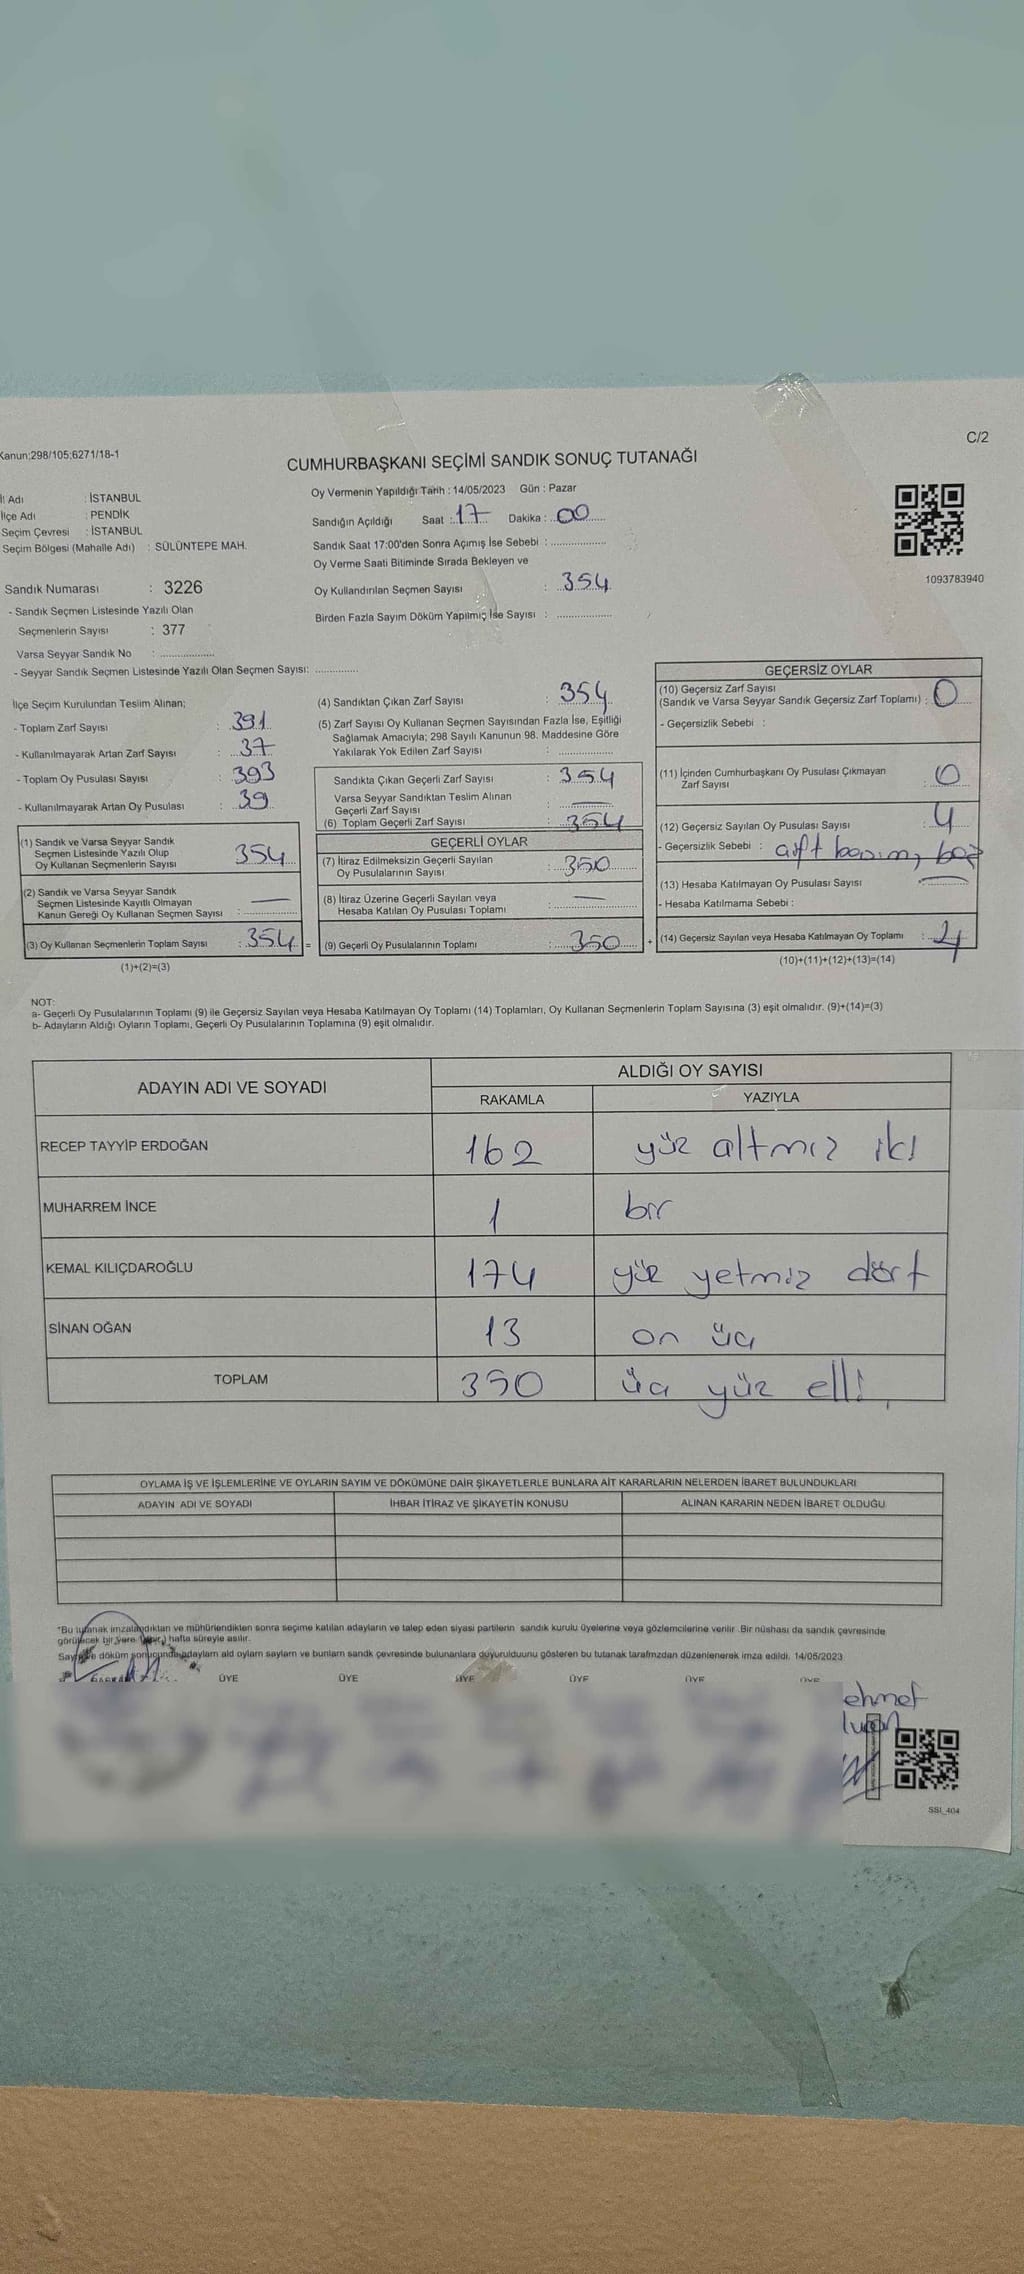 Kanun;298/105;6271/18-1
C/2
CUMHURBAŞKANI SEÇİMİ SANDIK SONUÇ TUTANAĞI
İl Adı : İSTANBUL
İlçe Adı : PENDİK
Seçim Çevresi : İSTANBUL
Seçim Bölgesi (Mahalle Adı) : SÜLÜNTEPE MAH.
Oy Vermenin Yapıldığı Tarih : 14/05/2023 Gün : Pazar
Sandığın Açıldığı Saat : 17 Dakika : 00
Sandık Saat 17:00'den Sonra Açımış İse Sebebi : ..................
Oy Verme Saati Bitiminde Sırada Bekleyen ve
Oy Kullandırılan Seçmen Sayısı : 354
Birden Fazla Sayım Döküm Yapılmış İse Sayısı : ..................
1093783940
Sandık Numarası : 3226
- Sandık Seçmen Listesinde Yazılı Olan
Seçmenlerin Sayısı : 377
Varsa Seyyar Sandık No : ..................
- Seyyar Sandık Seçmen Listesinde Yazılı Olan Seçmen Sayısı: ..............
İlçe Seçim Kurulundan Teslim Alınan;
- Toplam Zarf Sayısı : 391
- Kullanılmayarak Artan Zarf Sayısı : 37
- Toplam Oy Pusulası Sayısı : 393
- Kullanılmayarak Artan Oy Pusulası : 39
(1) Sandık ve Varsa Seyyar Sandık
Seçmen Listesinde Yazılı Olup
Oy Kullanan Seçmenlerin Sayısı 354
(2) Sandık ve Varsa Seyyar Sandık
Seçmen Listesinde Kayıtlı Olmayan
Kanun Gereği Oy Kullanan Seçmen Sayısı : —
(3) Oy Kullanan Seçmenlerin Toplam Sayısı : 354 =
(1)+(2)=(3)
(4) Sandıktan Çıkan Zarf Sayısı : 354
(5) Zarf Sayısı Oy Kullanan Seçmen Sayısından Fazla İse, Eşitliği
Sağlamak Amacıyla; 298 Sayılı Kanunun 98. Maddesine Göre
Yakılarak Yok Edilen Zarf Sayısı : ..................
Sandıkta Çıkan Geçerli Zarf Sayısı : 354
Varsa Seyyar Sandıktan Teslim Alınan
Geçerli Zarf Sayısı : —
(6) Toplam Geçerli Zarf Sayısı : 354
GEÇERLİ OYLAR
(7) İtiraz Edilmeksizin Geçerli Sayılan
Oy Pusulalarının Sayısı : 350
(8) İtiraz Üzerine Geçerli Sayılan veya
Hesaba Katılan Oy Pusulası Toplamı : —
(9) Geçerli Oy Pusulalarının Toplamı : 350 +
GEÇERSİZ OYLAR
(10) Geçersiz Zarf Sayısı
(Sandık ve Varsa Seyyar Sandık Geçersiz Zarf Toplamı) : 0
- Geçersizlik Sebebi :
(11) İçinden Cumhurbaşkanı Oy Pusulası Çıkmayan
Zarf Sayısı : 0
(12) Geçersiz Sayılan Oy Pusulası Sayısı : 4
- Geçersizlik Sebebi : çift basım, boş
(13) Hesaba Katılmayan Oy Pusulası Sayısı : —
- Hesaba Katılmama Sebebi :
(14) Geçersiz Sayılan veya Hesaba Katılmayan Oy Toplamı : 4
(10)+(11)+(12)+(13)=(14)
NOT:
a- Geçerli Oy Pusulalarının Toplamı (9) ile Geçersiz Sayılan veya Hesaba Katılmayan Oy Toplamı (14) Toplamları, Oy Kullanan Seçmenlerin Toplam Sayısına (3) eşit olmalıdır. (9)+(14)=(3)
b- Adayların Aldığı Oyların Toplamı, Geçerli Oy Pusulalarının Toplamına (9) eşit olmalıdır.
ADAYIN ADI VE SOYADI ALDIĞI OY SAYISI
RAKAMLA YAZIYLA
RECEP TAYYİP ERDOĞAN 162 yüz altmız iki
MUHARREM İNCE 1 bir
KEMAL KILIÇDAROĞLU 174 yüz yetmiz dört
SİNAN OĞAN 13 on üç
TOPLAM 350 üç yüz elli
OYLAMA İŞ VE İŞLEMLERİNE VE OYLARIN SAYIM VE DÖKÜMÜNE DAİR ŞİKAYETLERLE BUNLARA AİT KARARLARIN NELERDEN İBARET BULUNDUKLARI
ADAYIN ADI VE SOYADI İHBAR İTİRAZ VE ŞİKAYETİN KONUSU ALINAN KARARIN NEDEN İBARET OLDUĞU
"Bu tutanak imzalandıktan ve mühürlendikten sonra seçime katılan adayların ve talep eden siyasi partilerin sandık kurulu üyelerine veya gözlemcilerine verilir .Bir nüshası da sandık çevresinde
görülecek bir yere (bir) hafta süreyle asılır.
döküm sonucunda adayların ald oyların sayların ve bunların sandk çevresinde bulunanlara duyurulduunu gösteren bu tutanak tarafmzdan düzenlenerek imza edildi. 14/05/2023
ÜYE ÜYE ÜYE ÜYE ÜYE ÜYE
ehmet
SSI_404